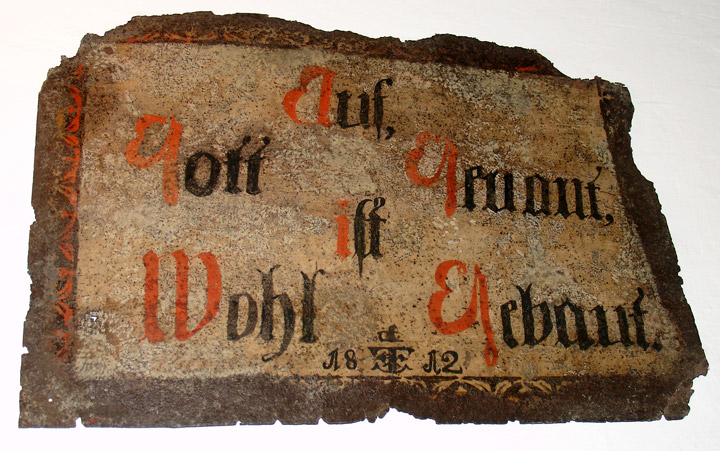 Auf,
Gott Gevaut,
ist
Wohl Gebaut.
18 12